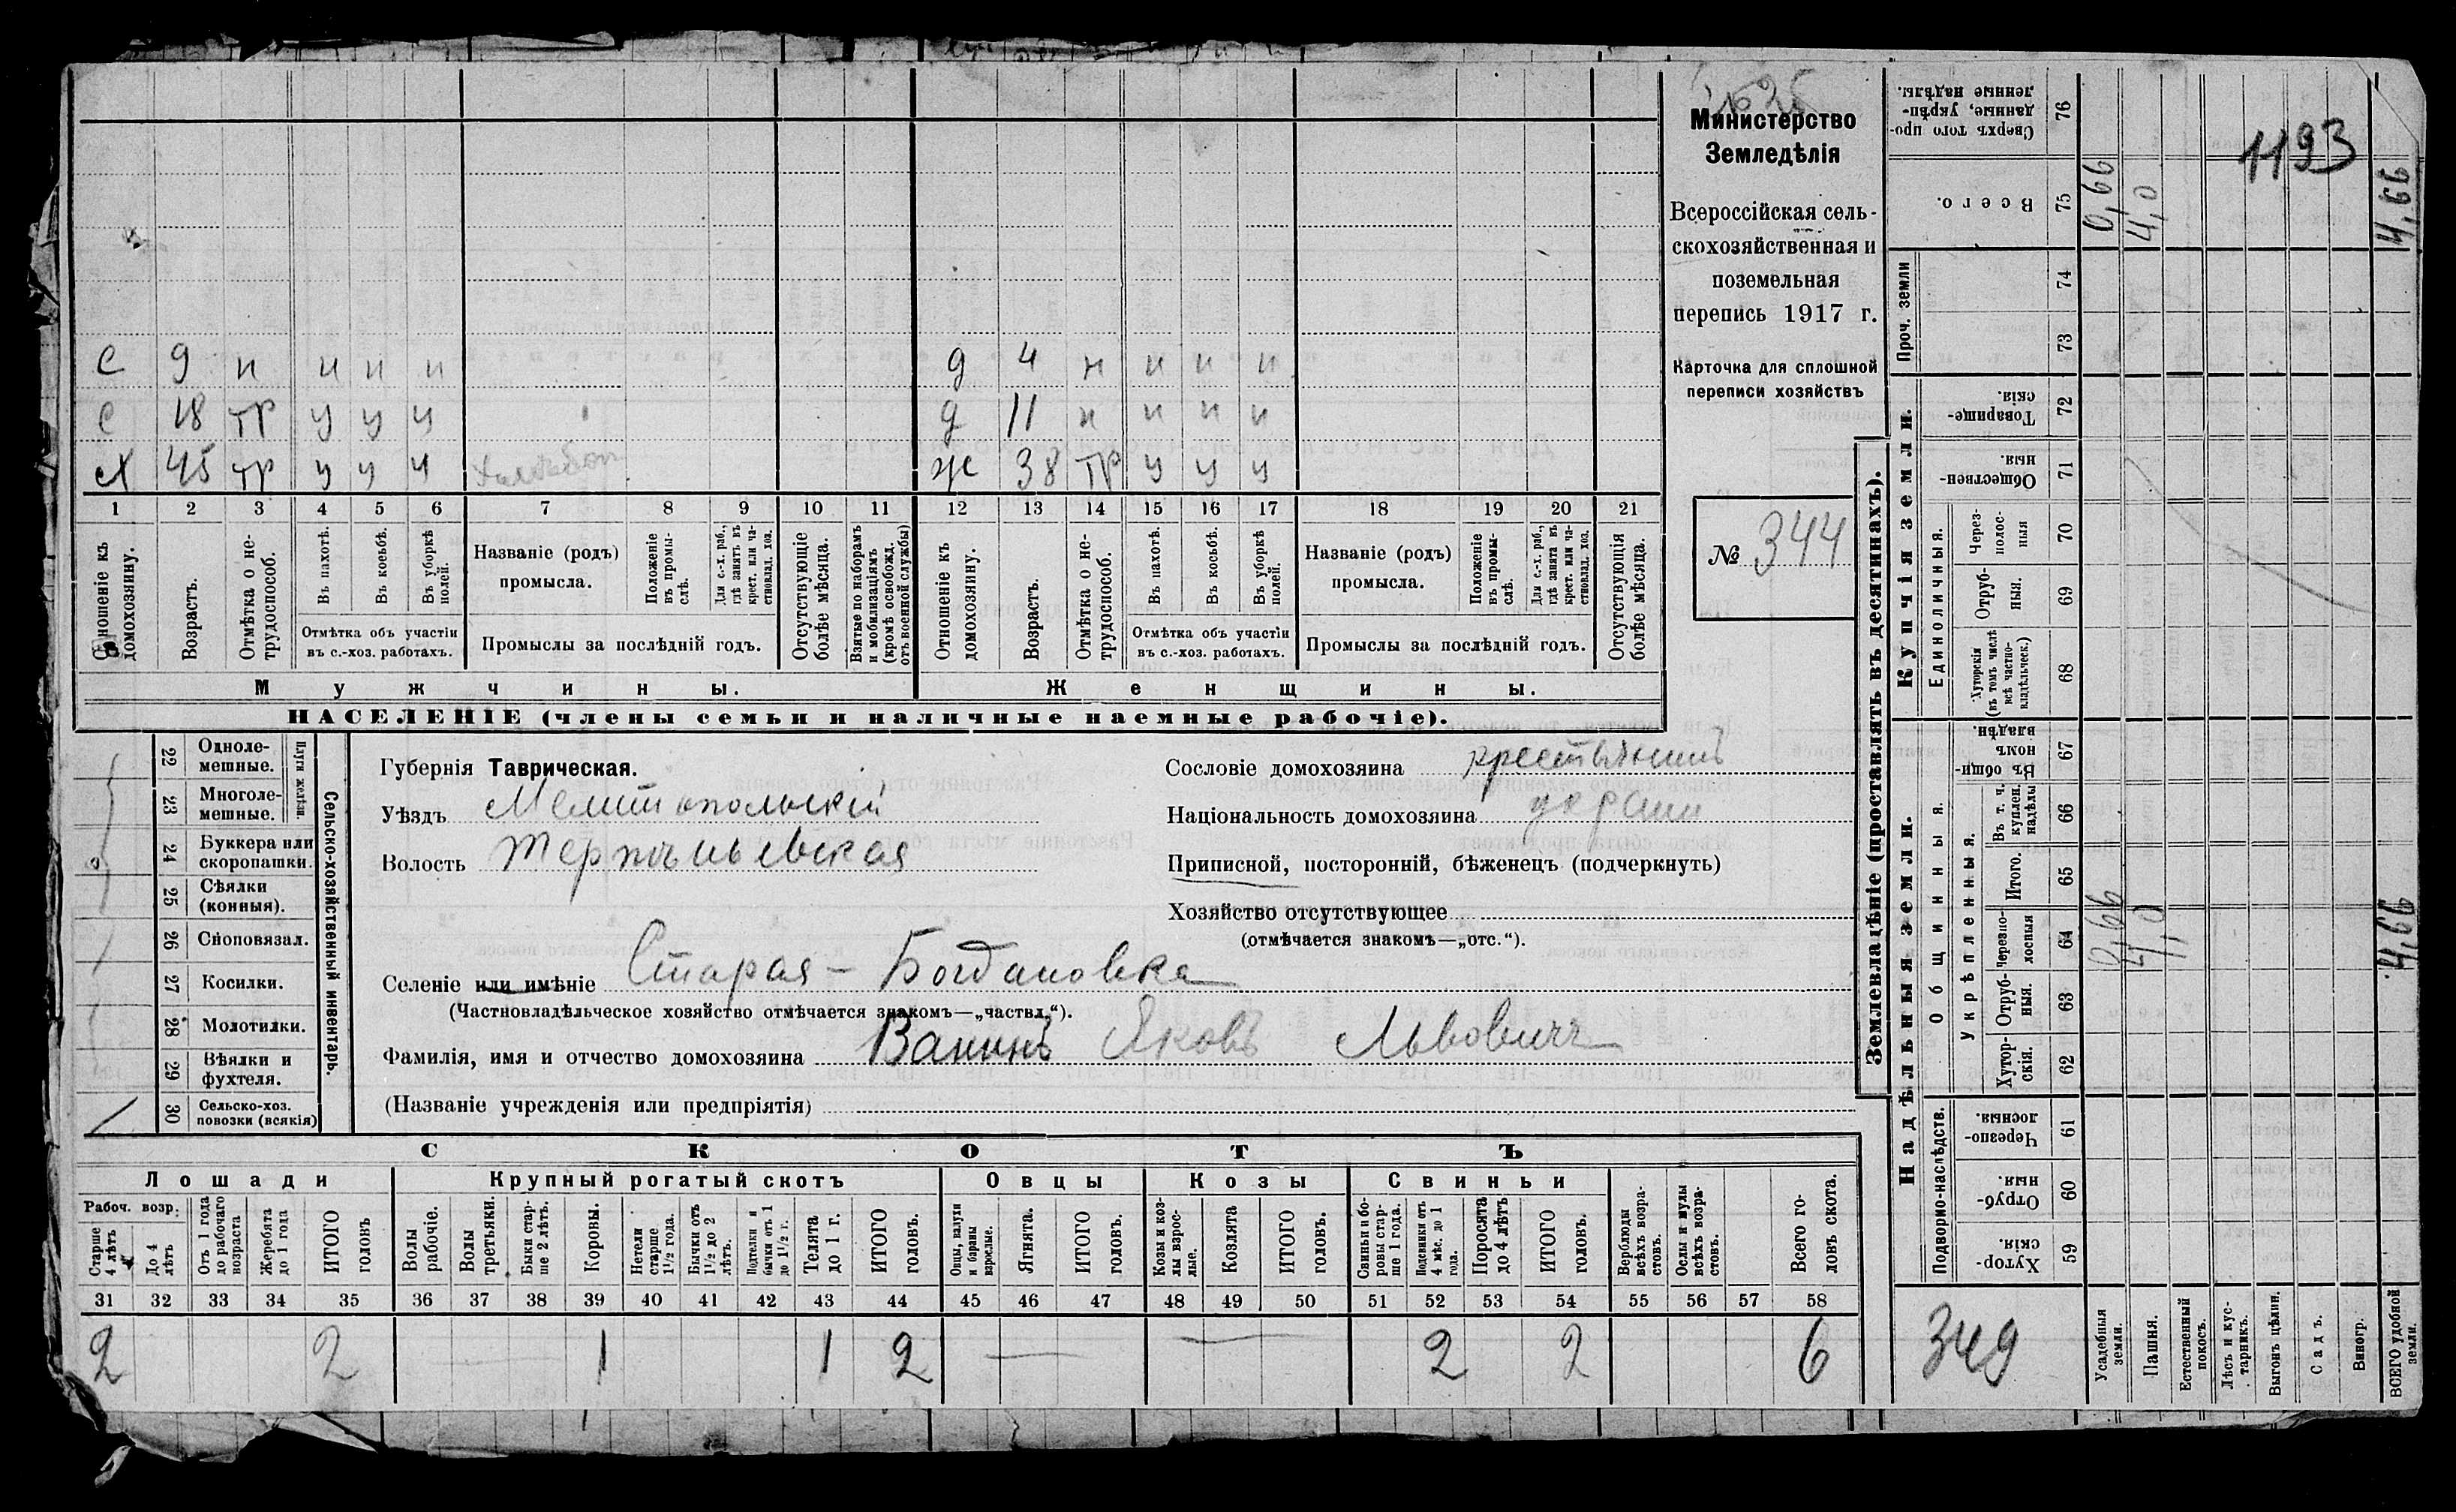 Министерство
Земледѣлія
Всероссійская сель-
скохозяйственная и
поземельная
перепись 1917 г.
Карточка для сплошной
переписи хозяйствъ
№ 344
С 9 н н н н
С 18 тр у у у
Х 45 тр у у у
д 4 н н н н
д 11 н н н н
ж 38 тр у у у
1 2 3 4 5 6 7 8 9 10 11 12 13 14 15 16 17 18 19 20 21
Отношеніе къ домохозяину.
Возрастъ.
Отмѣтка о не-трудоспособ.
Въ пахотѣ.
Въ косьбѣ.
Въ уборкѣ полей.
Отмѣтка объ участіи
въ с.-хоз. работахъ.
Названіе (родъ)
промысла.
Положеніе въ промы-слѣ.
Для с.-х. раб., гдѣ занятъ въ крест. или ча-стновлад. хоз.
Промыслы за послѣдній годъ.
Отсутствующіе болѣе мѣсяца.
Взятые по наборамъ и мобилизаціямъ (кромѣ освобожд. отъ военной службы)
Отношеніе къ домохозяину.
Возрастъ.
Отмѣтка о не-трудоспособ.
Въ пахотѣ.
Въ косьбѣ.
Въ уборкѣ полей.
Отмѣтка объ участіи
въ с.-хоз. работахъ.
Названіе (родъ)
промысла.
Положеніе въ промы-слѣ.
Для с.-х. раб., гдѣ занята въ крест. или ча-стновлад. хоз.
Промыслы за послѣдній годъ.
Отсутствующія болѣе мѣсяца.
Мужчины.
Женщины.
НАСЕЛЕНІЕ (члены семьи и наличные наемные рабочіе).
22 Одноле-мешные.
23 Многоле-мешные.
Плуги желѣзн.
24 Буккера или скоропашки.
25 Сѣялки (конныя).
26 Сноповязал.
27 Косилки.
28 Молотилки.
29 Вѣялки и фухтеля.
30 Сельско-хоз. повозки (всякія)
Сельско-хозяйственный инвентарь.
Губернія Таврическая.
Уѣздъ Мелитопольскій
Волость Терпѣньевская
Сословіе домохозяина крестьянинъ
Національность домохозяина украин
Приписной, посторонній, бѣженецъ (подчеркнуть)
Хозяйство отсутствующее
(отмѣчается знакомъ—„отс.“).
Селеніе или имѣніе Старая - Богдановка
(Частновладѣльческое хозяйство отмѣчается знакомъ—„частвл.“).
Фамилія, имя и отчество домохозяина Ванинъ Яковъ Львовичъ
(Названіе учрежденія или предпріятія)
СКОТЪ
Лошади
Крупный рогатый скотъ
Овцы
Козы
Свиньи
Рабоч. возр.
Старше 4 лѣтъ
До 4 лѣтъ
Отъ 1 года до рабочаго возраста
Жеребята до 1 года
ИТОГО головъ
Волы рабочіе.
Волы третьяки.
Быки стар-ше 2 лѣтъ.
Коровы.
Нетели старше 1½ года.
Бычки отъ 1½ до 2 лѣтъ.
Подтелки и бычки отъ 1 до 1½ г.
Телята до 1 г.
ИТОГО головъ.
Овцы, валухи и бараны взрослые.
Ягнята.
ИТОГО головъ.
Козы и коз-лы взрос-лые.
Козлята
ИТОГО головъ.
Свиньи и бо-ровы стар-ше 1 года.
Подсвинки отъ 4 мѣс. до 1 года.
Поросята до 4 лѣтъ
ИТОГО головъ.
Верблюды всѣхъ возра-стовъ.
Ослы и мулы всѣхъ возра-стовъ.
Всего го-ловъ скота.
31 32 33 34 35 36 37 38 39 40 41 42 43 44 45 46 47 48 49 50 51 52 53 54 55 56 57 58
2 2 1 1 2 2 2 6
Землевладѣніе (проставлять въ десятинахъ).
Надѣльныя земли.
Купчія земли.
Проч. земли
Подворно-наслѣдств.
Общинныя.
Укрѣпленныя.
Единоличныя.
Хутор-скія. 59
Отруб-ныя. 60
Черезпо-лосныя. 61
Хутор-скія. 62
Отруб-ныя. 63
Черезпо-лосныя 64
Итого. 65
Въ т. ч. куплен. надѣлы 66
Въ общи-номъ владѣн. 67
Хуторскія (въ томъ числѣ всѣ частно-владѣльческ.) 68
Отруб-ныя. 69
Через-полос-ныя 70
Обществен-ныя. 71
Товарище-скія. 72
73
74
Всего. 75
Сверхъ того про-данные, укрѣп-ленные надѣлы. 76
Усадебныя земли. 0,66 0,66
Пашня. 4,0 4,0
Естественный покосъ.
Лѣсъ и кус-тарникъ.
Выгонъ цѣлин.
Садъ.
Виногр.
ВСЕГО удобной земли. 4,66 4,66
1193
349